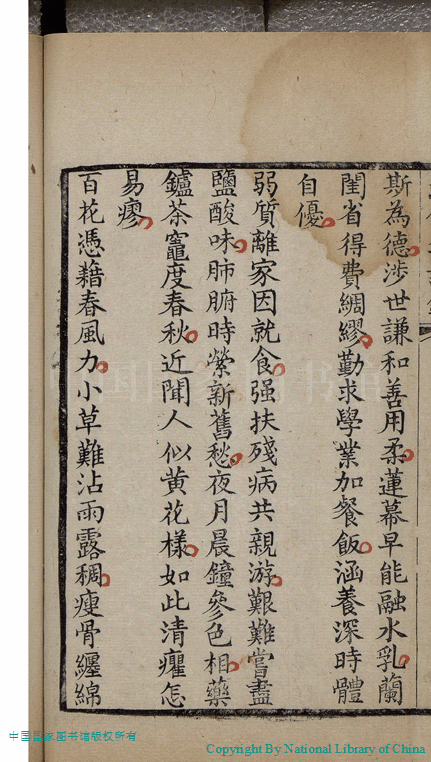 斯為德涉世謙和善用柔蓮幕早能融水乳蘭
閨省得費綢繆勤求學業加餐飯涵養深時體
自優
弱質離家因就食强扶殘病共親游艱難嘗盡
鹽酸味肺腑時縈新舊愁夜月晨鐘參色相藥
鑪茶竈度春秋近聞人似黃花樣如此清癯怎
易瘳
百花憑藉春風力小草難沾雨露稠瘦骨纏綿
中国国家图书馆版权所有
Copyright By National Library of China